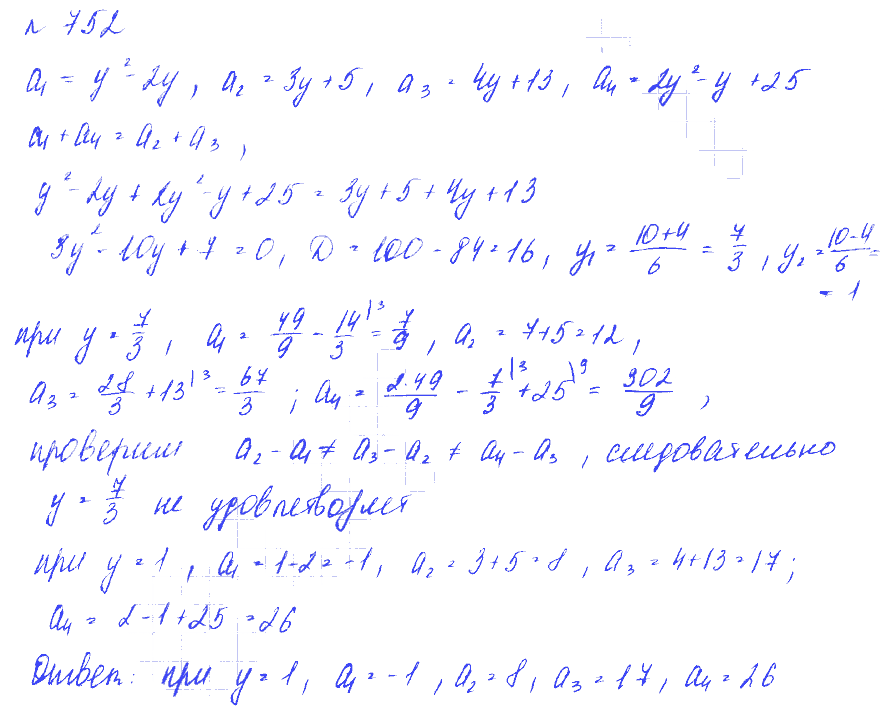 № 752
a₁ = y² - 2y, a₂ = 3y + 5, a₃ = 4y + 13, a₄ = 2y² - y + 25
a₁ + a₄ = a₂ + a₃,
y² - 2y + 2y² - y + 25 = 3y + 5 + 4y + 13
3y² - 10y + 7 = 0, D = 100 - 84 = 16, y₁ = (10+4)/6 = 7/3, y₂ = (10-4)/6 =
= 1
при y = 7/3, a₁ = 49/9 - 14/3 |3 = 7/9, a₂ = 7+5 = 12,
a₃ = 28/3 + 13 |3 = 67/3; a₄ = 2·49/9 - 7/3 |3 + 25 |9 = 302/9,
проверим a₂ - a₁ ≠ a₃ - a₂ ≠ a₄ - a₃, следовательно
y = 7/3 не удовлетворяет
при y = 1, a₁ = 1 - 2 = -1, a₂ = 3 + 5 = 8, a₃ = 4 + 13 = 17;
a₄ = 2 - 1 + 25 = 26
Ответ: при y = 1, a₁ = -1, a₂ = 8, a₃ = 17, a₄ = 26